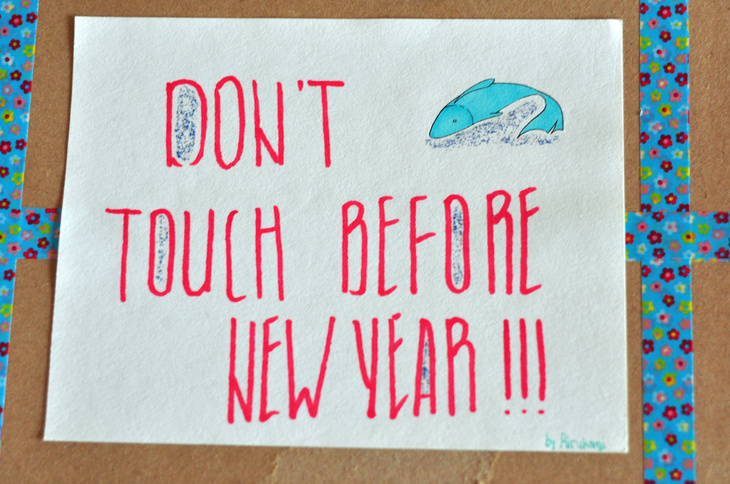 DON'T
TOUCH BEFORE
NEW YEAR!!!
by